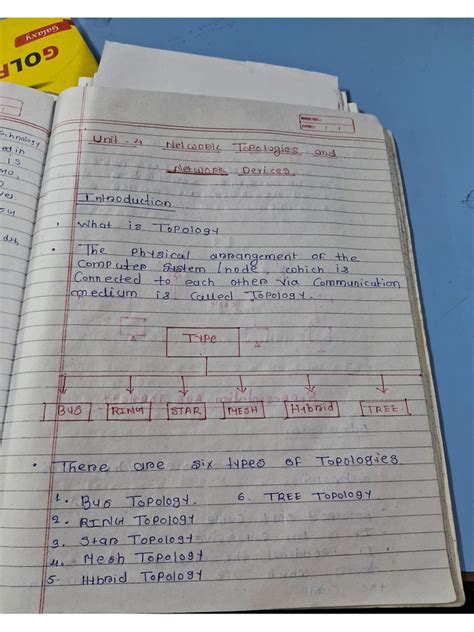 Galaxy
GOLF
Unit - 4 Network Topologies and
Network Devices.
Introduction
• What is Topology
• The Physical arrangement of the
Computer System / node, which is
Connected to each other via Communication
medium is Called Topology.
TYPE
BUS RING STAR MESH Hybrid TREE
• There are six types of Topologies
1. Bus Topology. 6. TREE Topology
2. RING Topology
3. Star Topology
4. Mesh Topology
5. Hybrid Topology